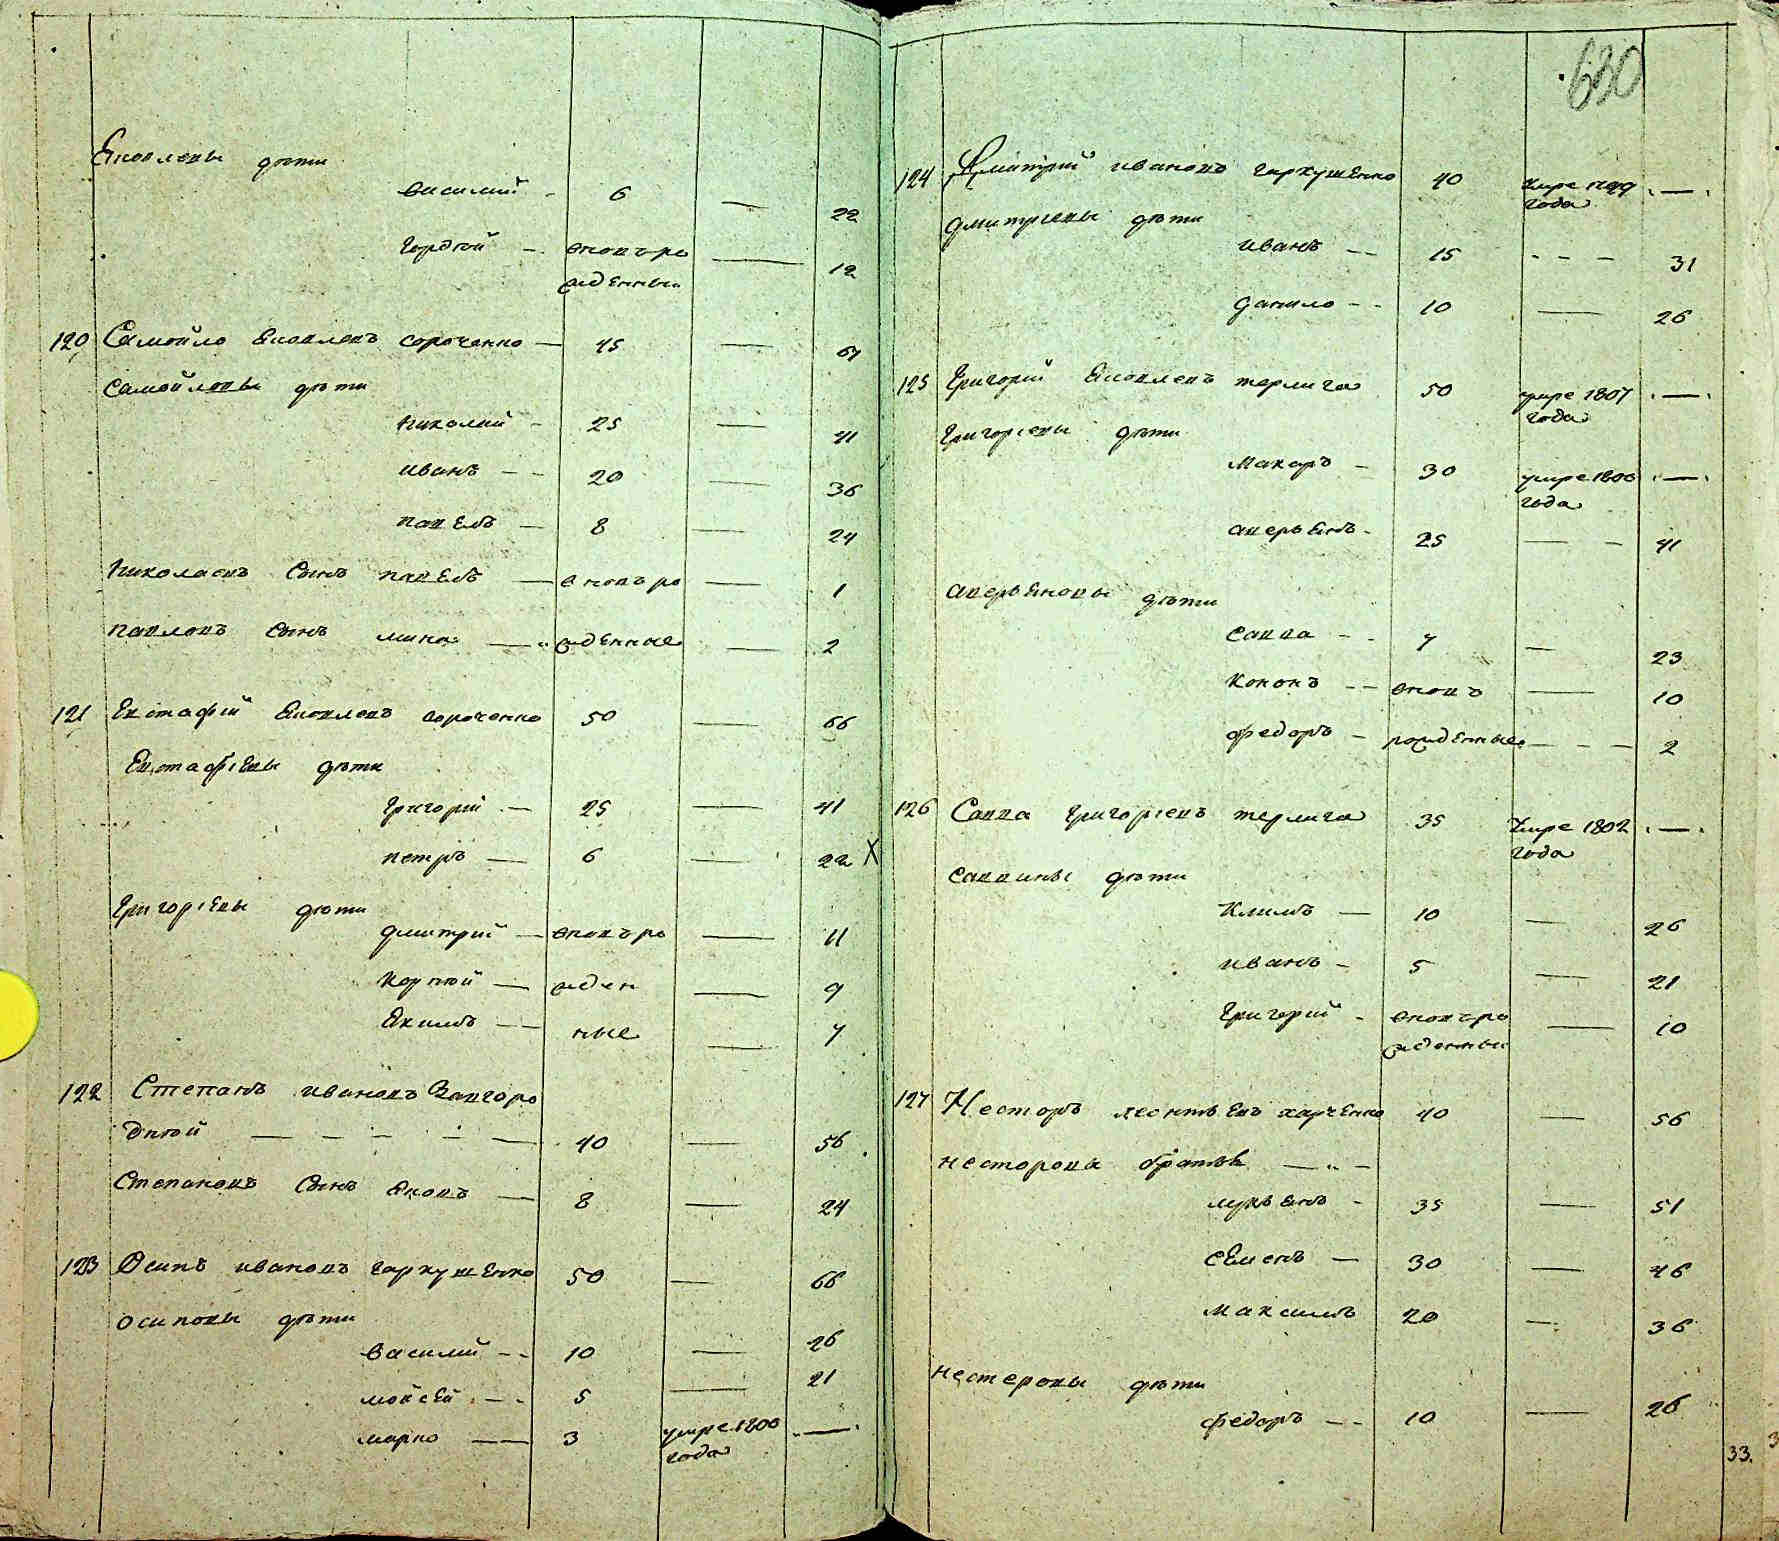 Яковлевы дѣти
василий - 6 — 22
Гордѣй - вновь ро — 12
жденны
120 Самойло Яковлевъ сороченко — 45 — 61
Самойловы дѣти
Николай - 25 — 41
иванъ - - 20 — 36
павелъ — 8 — 24
Николаевъ сынъ павелъ — вновь ро — 1
павловъ сынъ мина — жденные — 2
121 Евстафий Яковлевъ сороченко 50 — 66
Евстафиевы дѣти
Григорий — 25 — 41
петръ — 6 — 22 X
Григориевы дѣти
дмитрий — вновь ро — 11
Корнѣй — жден — 9
Якимъ — ные — 7
122 Степанъ ивановъ Завгоро
дней — — — — — 40 — 56
Степановъ сынъ Яковъ — 8 — 24
123 Осипъ ивановъ гаркушенко 50 — 66
осиповы дѣти
василий - - 10 — 26
мойсей - - 5 — 21
марко — 3 умре 1806 —
года
630
124 Дмитрий ивановъ гаркушенко 40 умре 1799 —
года
дмитриевы дѣти
иванъ - - 15 - - - 31
данило - - 10 — 26
125 Григорий Яковлевъ терлига 50 умре 1807 —
года
Григориевы дѣти
Макаръ - 30 умре 1806 —
года
аверьянъ - 25 — — 41
аверьяновы дѣти
Савва - - 7 — 23
Кононъ - - вновь — 10
федоръ - рожденные - — — 2
126 Савва Григориевъ терлига 35 умре 1802 —
года
саввины дѣти
Климъ — 10 — 26
иванъ - 5 — 21
Григорий - вновь ро — 10
жденны
127 Несторъ леонтьевъ харченко 40 — 56
несторовы братья — " —
лукьянъ - 35 — 51
Семенъ — 30 — 46
максимъ 20 — 36
нестеровы дѣти
федоръ - - 10 — 26
33.